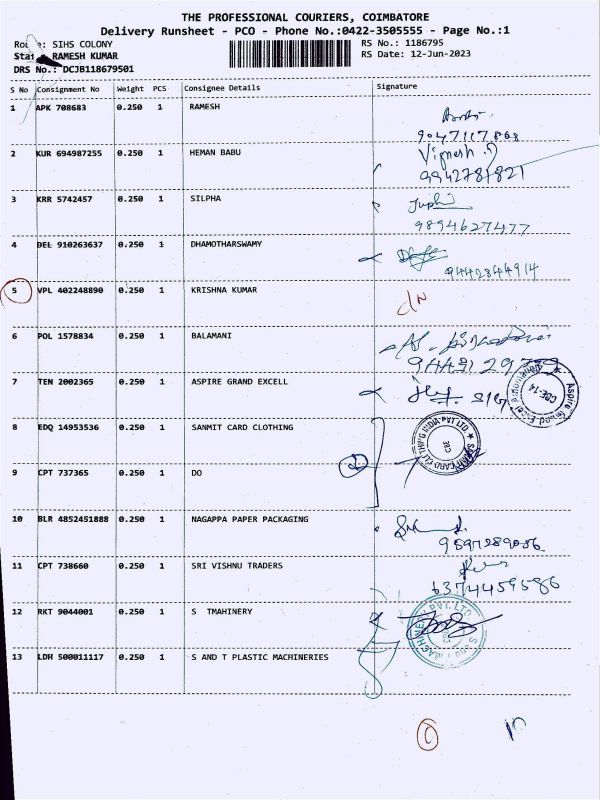 THE PROFESSIONAL COURIERS, COIMBATORE
Delivery Runsheet - PCO - Phone No.:0422-3505555 - Page No.:1
SIHS COLONY RS No.: 1186795
RAMESH KUMAR RS Date: 12-Jun-2023
DRS No.: DCJB118679501
S No Consignment No Weight PCS Consignee Details Signature
1 APK 708683 0.250 1 RAMESH
2 KUR 694987255 0.250 1 HEMAN BABU Vignesh
9942781821
3 KRR 5742457 0.250 1 SILPHA
9894627477
4 DEL 910263637 0.250 1 DHAMOTHARSWAMY
9442844914
5 VPL 402248890 0.250 1 KRISHNA KUMAR
6 POL 1578834 0.250 1 BALAMANI
7 TEN 2002365 0.250 1 ASPIRE GRAND EXCELL
CBE-14
8 EDQ 14953536 0.250 1 SANMIT CARD CLOTHING
SANMIT CARD CLOTHING INDIA PVT LTD
CBE
9 CPT 737365 0.250 1 DO
10 BLR 4852451888 0.250 1 NAGAPPA PAPER PACKAGING
9597289056
11 CPT 738660 0.250 1 SRI VISHNU TRADERS
6374459586
12 RKT 9044001 0.250 1 S TMAHINERY
13 LDH 500011117 0.250 1 S AND T PLASTIC MACHINERIES